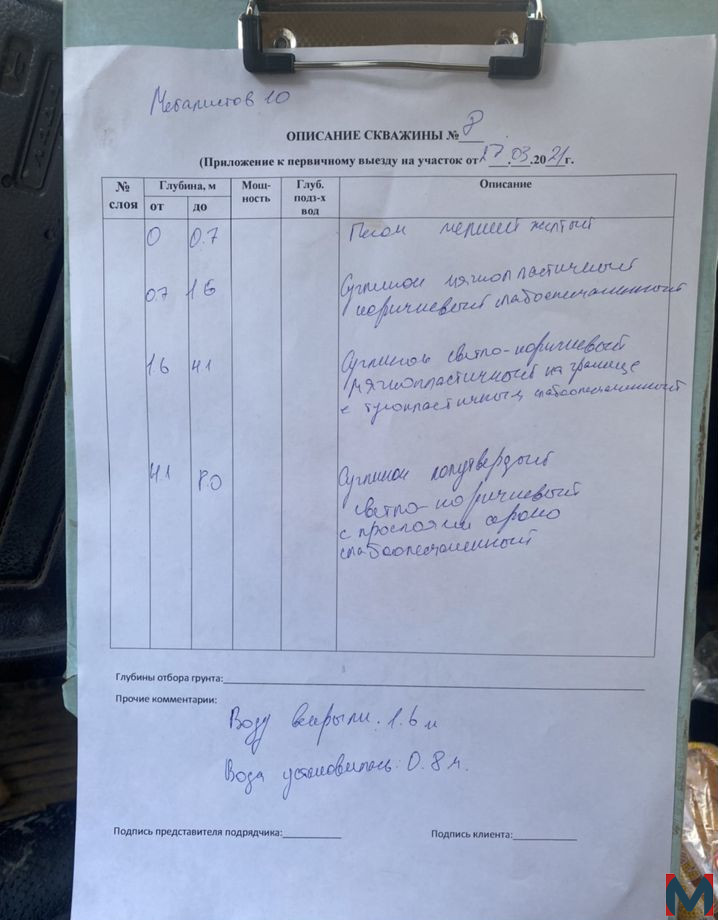 Металистов 10
ОПИСАНИЕ СКВАЖИНЫ № 8
(Приложение к первичному выезду на участок от 27.03.2021г.
№ слоя Глубина, м от до Мощ-ность Глуб. подз-х вод Описание
0 0.7 Песок мерший желтый
0.7 1.6 Суглинок мягкопластичный
коричневый слабоопесчаненный
1.6 4.1 Суглинок светло-коричневый
мягкопластичный на границе
с тугопластичным слабоопесчаненный
4.1 8.0 Суглинок полутвердый
светло-коричневый
с прослоями серого
слабоопесчаненный
Глубины отбора грунта:
Прочие комментарии:
Воду вскрыли: 1.6 м
Вода установилась: 0.8 м.
Подпись представителя подрядчика: Подпись клиента:
M